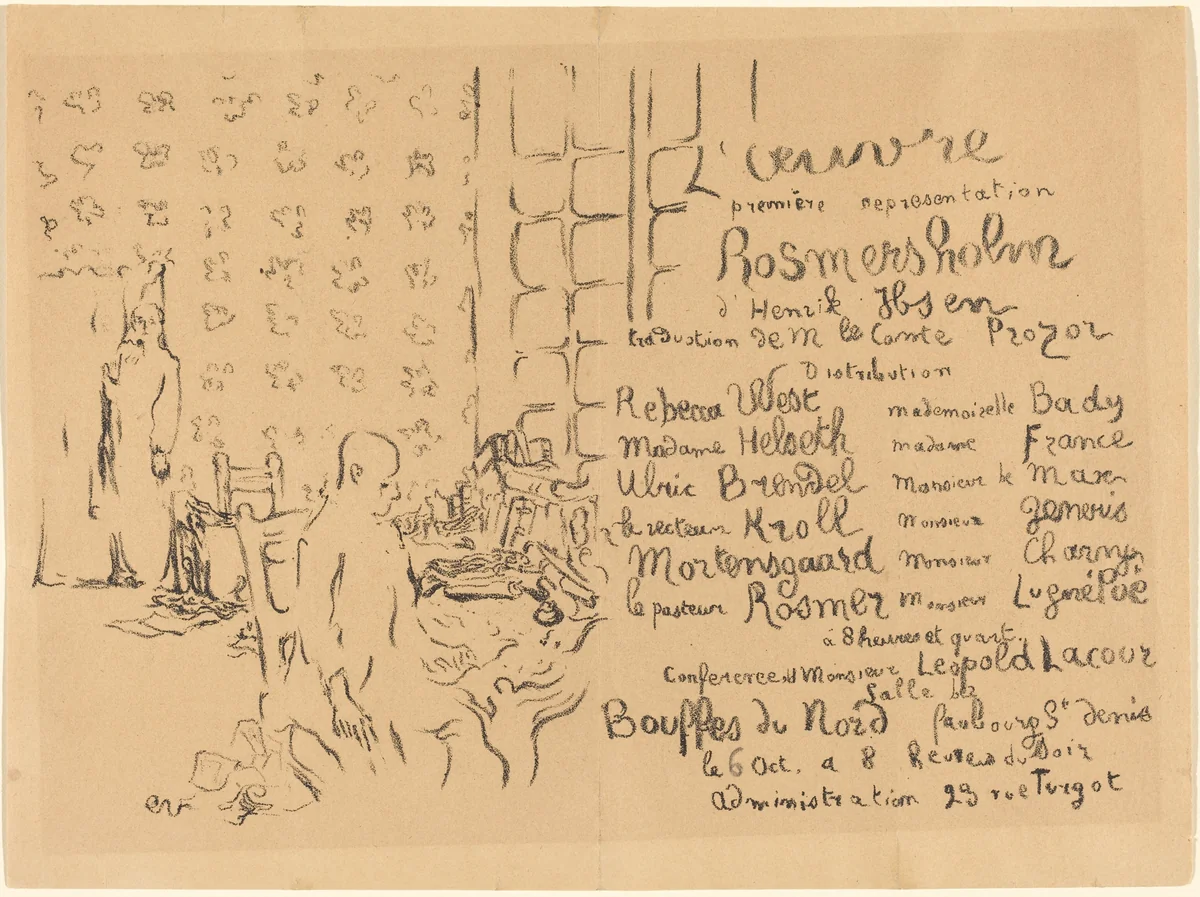 L'œuvre
première representation
Rosmersholm
d'Henrik Ibsen
traduction de M le Comte Prozor
Distribution
Rebecca West mademoiselle Bady
Madame Helseth madame France
Ulric Brendel Monsieur de Max
le recteur Kroll Monsieur
Mortensgaard Monsieur Charny
le pasteur Rosmer Monsieur LugnéPoë
à 8 heures et quart.
Conference d Monsieur Leopold Lacour
Salle des
Bouffes du Nord faubourg St denis
le 6 Oct. a 8 heures du Soir
administration 23 rue Turgot
ev